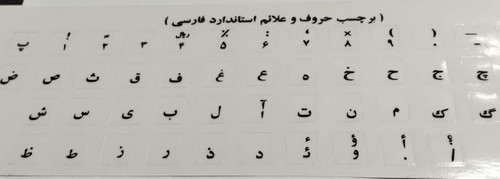 ( برچسب حروف و علائم استاندارد فارسی )
ـ ( ) × ، : ٪ ریال !
- ۰ ۹ ۸ ۷ ۶ ۵ ۴ ۳ ۲ ۱ پ
چ ج ح خ ه ع غ ف ق ث ص ض
آ
گ ک م ن ت ا ل ب ی س ش
؟ أ ؤ ء
ا . و ئ د ذ ر ز ط ظ